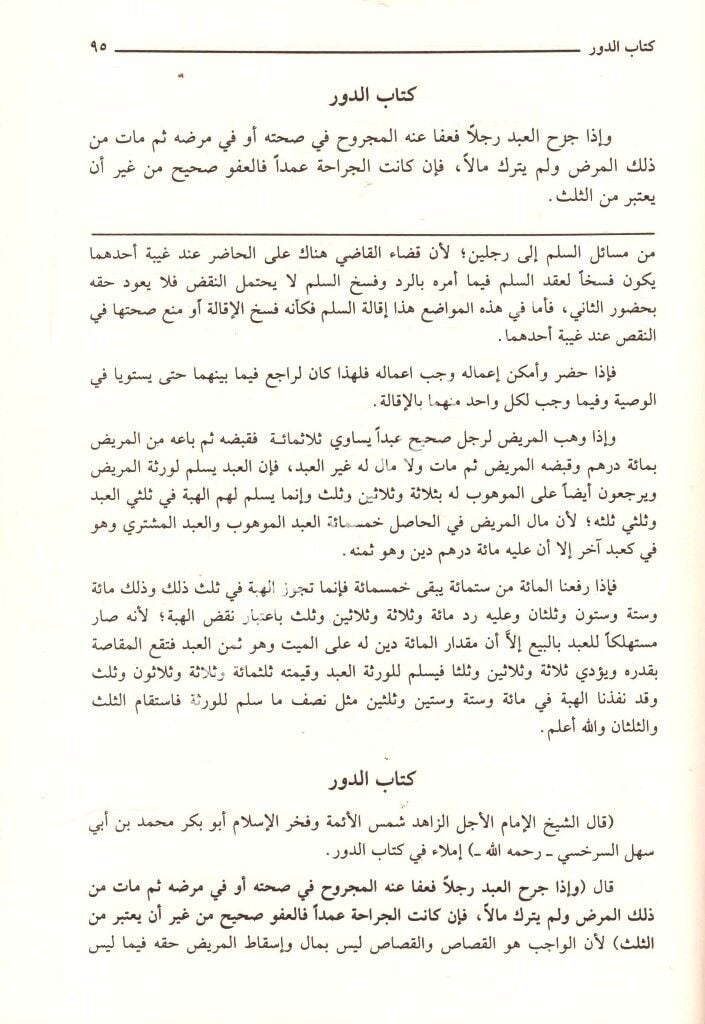 كتاب الدور ٩٥
كتاب الدور
وإذا جرح العبد رجلاً فعفا عنه المجروح في صحته أو في مرضه ثم مات من
ذلك المرض ولم يترك مالاً، فإن كانت الجراحة عمداً فالعفو صحيح من غير أن
يعتبر من الثلث.
من مسائل السلم إلى رجلين؛ لأن قضاء القاضي هناك على الحاضر عند غيبة أحدهما
يكون فسخاً لعقد السلم فيما أمره بالرد وفسخ السلم لا يحتمل النقض فلا يعود حقه
بحضور الثاني، فأما في هذه المواضع هذا إقالة السلم فكأنه فسخ الإقالة أو منع صحتها في
النقص عند غيبة أحدهما.
فإذا حضر وأمكن إعماله وجب اعماله فلهذا كان لراجع فيما بينهما حتى يستويا في
الوصية وفيما وجب لكل واحد منهما بالإقالة.
وإذا وهب المريض لرجل صحيح عبداً يساوي ثلاثمائة فقبضه ثم باعه من المريض
بمائة درهم وقبضه المريض ثم مات ولا مال له غير العبد، فإن العبد يسلم لورثة المريض
ويرجعون أيضاً على الموهوب له بثلاثة وثلاثين وثلث وإنما يسلم لهم الهبة في ثلثي العبد
وثلثي ثلثه؛ لأن مال المريض في الحاصل خمسمائة العبد الموهوب والعبد المشتري وهو
في كعبد آخر إلا أن عليه مائة درهم دين وهو ثمنه.
فإذا رفعنا المائة من ستمائة يبقى خمسمائة فإنما تجوز الهبة في ثلث ذلك وذلك مائة
وستة وستون وثلثان وعليه رد مائة وثلاثة وثلاثين وثلث باعتبار نقض الهبة؛ لأنه صار
مستهلكاً للعبد بالبيع إلاَّ أن مقدار المائة دين له على الميت وهو ثمن العبد فتقع المقاصة
بقدره ويؤدي ثلاثة وثلاثين وثلثا فيسلم للورثة العبد وقيمته ثلثمائة وثلاثة وثلاثون وثلث
وقد نفذنا الهبة في مائة وستة وستين وثلثين مثل نصف ما سلم للورثة فاستقام الثلث
والثلثان والله أعلم.
كتاب الدور
(قال الشيخ الإمام الأجل الزاهد شمس الأئمة وفخر الإسلام أبو بكر محمد بن أبي
سهل السرخسي ـ رحمه الله ـ) إملاء في كتاب الدور.
قال (وإذا جرح العبد رجلاً فعفا عنه المجروح في صحته أو في مرضه ثم مات من
ذلك المرض ولم يترك مالاً، فإن كانت الجراحة عمداً فالعفو صحيح من غير أن يعتبر من
الثلث) لأن الواجب هو القصاص والقصاص ليس بمال وإسقاط المريض حقه فيما ليس